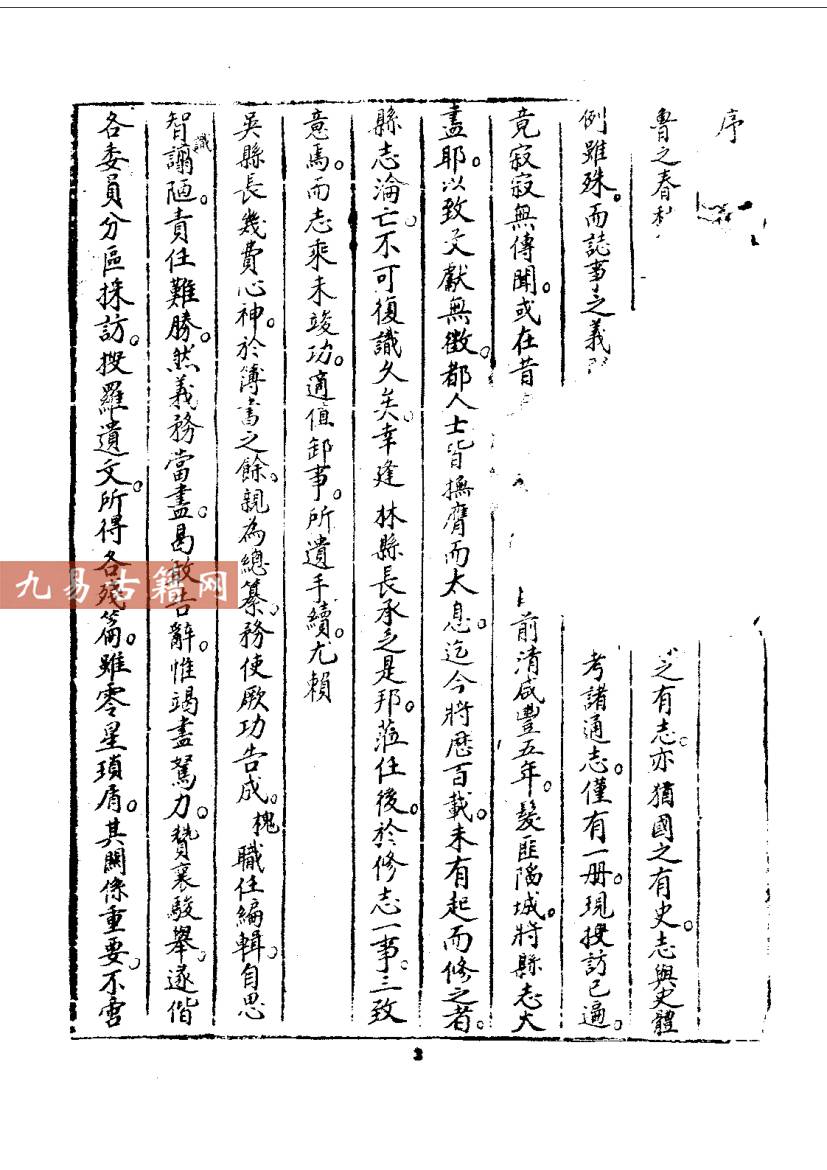 序
魯之春秋之有志。亦猶國之有史。志與史體
例雖殊。而誌事之義考諸通志。僅有一册。現搜訪已遍。
竟寂寂無傳聞。或在昔前清咸豐五年。髮匪陷城。將縣志大
盡耶。以致文獻無徵。都人士皆撫膺而太息。迄今將歷百載。未有起而修之者。
縣志淪亡。不可復識久矣。幸逢 林縣長承乏是邦。蒞任後。於修志一事。三致
意焉。而志乘未竣功。適值卸事。所遺手續。尤賴
吳縣長幾費心神。於簿書之餘。親為總纂。務使厥功告成。槐職任編輯。自思
智識謭陋。責任難勝。然義務當盡。曷敢告辭。惟竭盡駑力。贊襄駿舉。遂偕
各委員分區採訪。搜羅遺文。所得各殘篇。雖零星瑣屑。其關係重要。不啻
3
九易古籍网